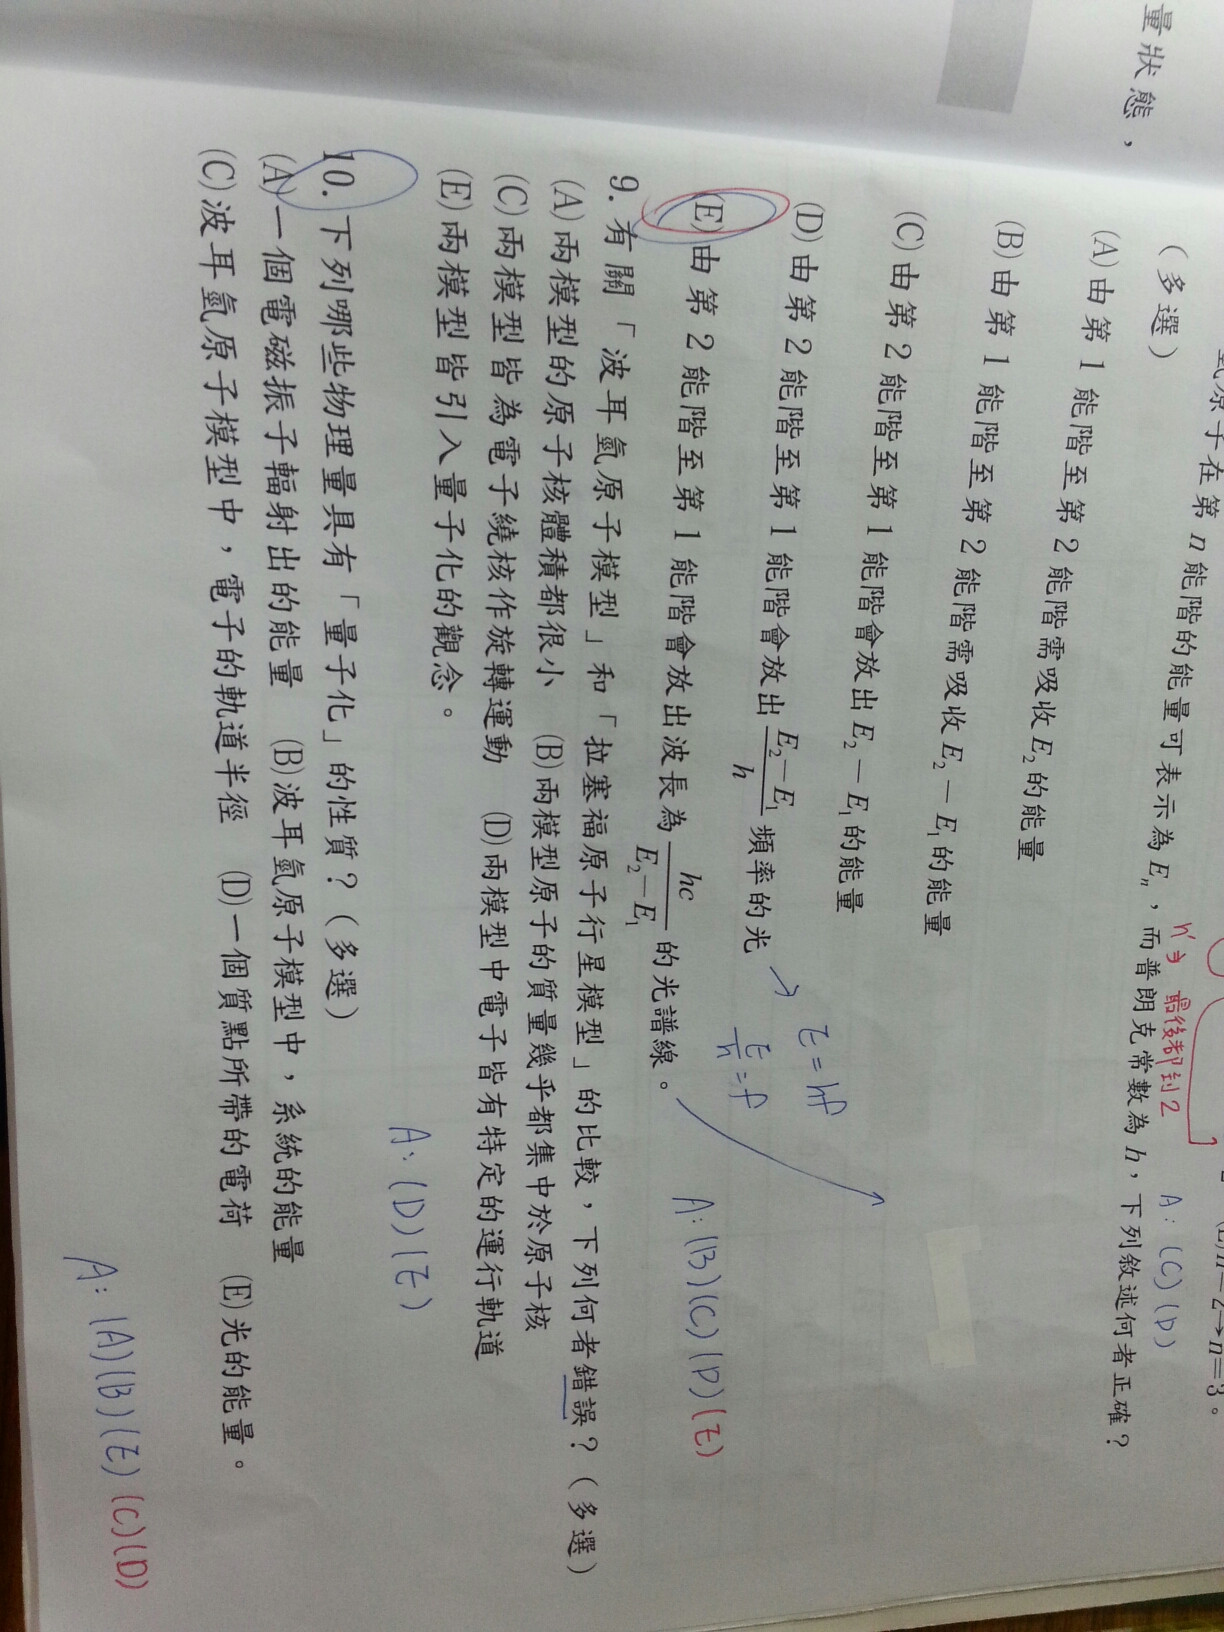 量狀態，
氫原子在第 n 能階的能量可表示為 Eₙ，而普朗克常數為 h，下列敘述何者正確？
(E) n=2→n=3。
（多選）
n'⇒ 最後都到2
A: (C)(D)
(A)由第 1 能階至第 2 能階需吸收 E₂ 的能量
(B)由第 1 能階至第 2 能階需吸收 E₂－E₁ 的能量
(C)由第 2 能階至第 1 能階會放出 E₂－E₁ 的能量
(D)由第 2 能階至第 1 能階會放出 (E₂－E₁)/h 頻率的光
→ E=hf
E/h=f
(E)由第 2 能階至第 1 能階會放出波長為 hc/(E₂－E₁) 的光譜線。
A: (B)(C)(D)(E)
9. 有關「波耳氫原子模型」和「拉塞福原子行星模型」的比較，下列何者錯誤？（多選）
(A)兩模型的原子核體積都很小 (B)兩模型原子的質量幾乎都集中於原子核
(C)兩模型皆為電子繞核作旋轉運動 (D)兩模型中電子皆有特定的運行軌道
(E)兩模型皆引入量子化的觀念。
A: (D)(E)
10. 下列哪些物理量具有「量子化」的性質？（多選）
(A)一個電磁振子輻射出的能量 (B)波耳氫原子模型中，系統的能量
(C)波耳氫原子模型中，電子的軌道半徑 (D)一個質點所帶的電荷 (E)光的能量。
A: (A)(B)(E)(C)(D)